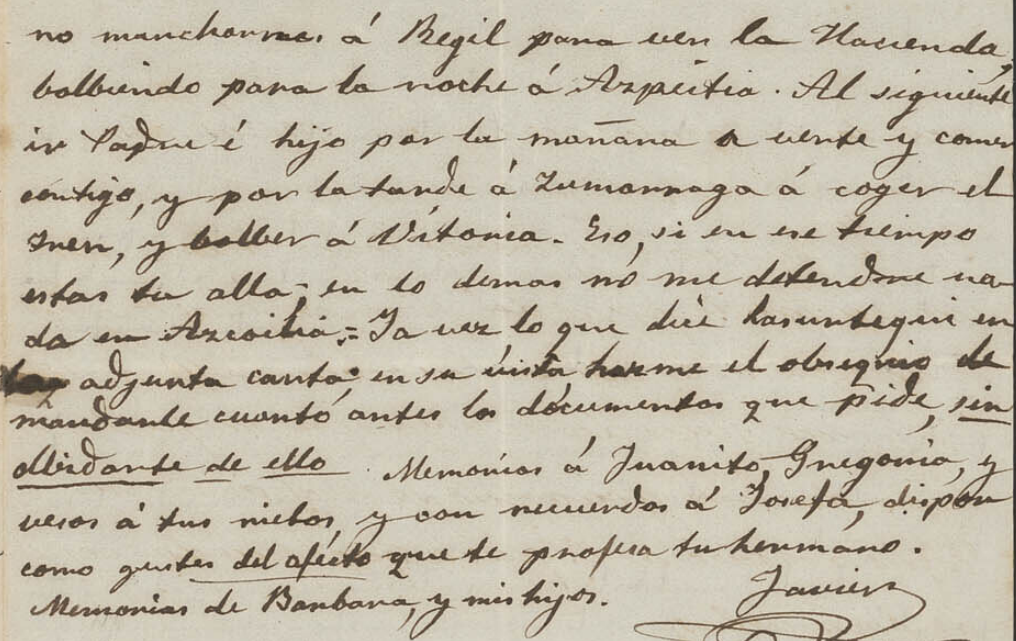 no marcharnos á Regil para ver la Hacienda,
bolbiendo para la noche á Azpeitia. Al siguiente
ir Padre é hijo por la mañana a verte y comer
contigo, y por la tarde á Zumarraga á coger el
tren, y bolber á Vitoria. Eso, si en ese tiempo
estas tu alla; en lo demas no me detendre na-
da en Azcoitia. = Ya vez lo que dice en
la adjunta carta: en su vista hazme el obsequio de
mandarle cuanto antes los documentos que pide, sin
olbidarte de ello. Memorias á Juanito, Gregoria, y
vesos á tus nietos, y con recuerdos á Josefa, dispon
como gustes del afecto que te profesa tu hermano.
Javier
Memorias de Barbara, y mis hijos.